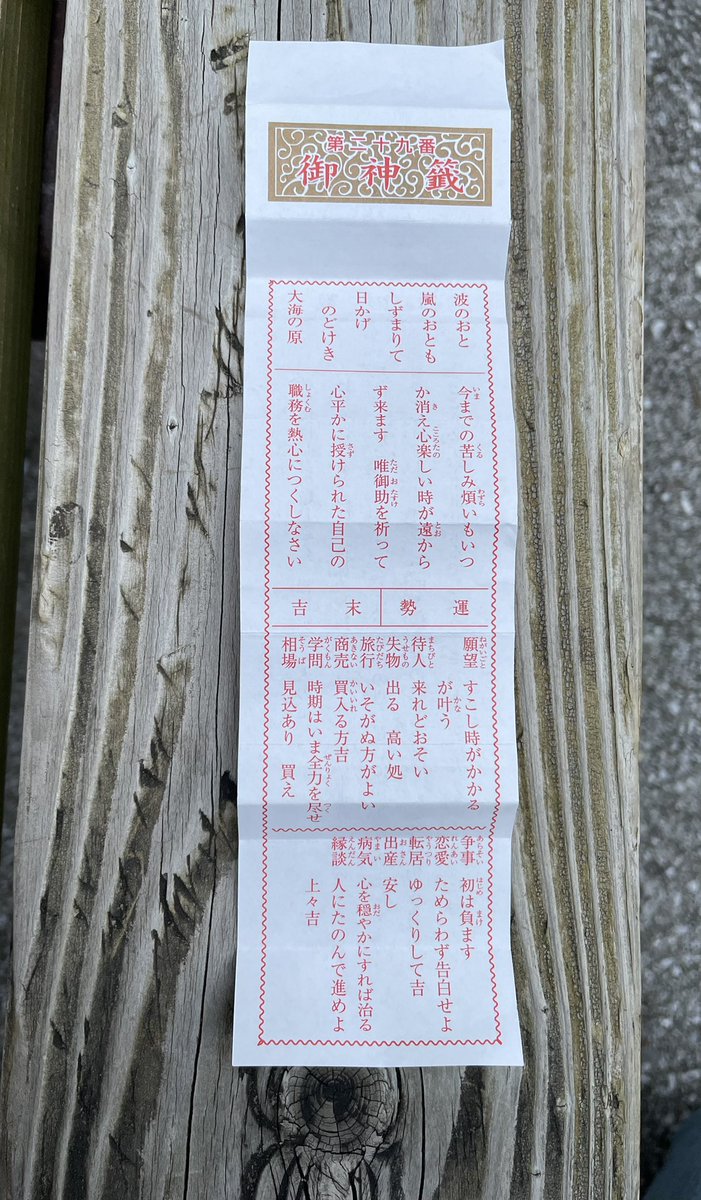 第二十九番
御神籤
波のおと
嵐のおとも
しずまりて
日かげ
のどけき
大海の原
今までの苦しみ煩いもいつ
か消え心楽しい時が遠から
ず来ます 唯御助を祈って
心平かに授けられた自己の
職務を熱心につくしなさい
運勢
末吉
願望 すこし時がかかる
が叶う
待人 来れどおそい
失物 出る 高い処
旅行 いそがぬ方がよい
商売 買入る方吉
学問 時期はいま全力を尽せ
相場 見込あり 買え
争事 初は負ます
恋愛 ためらわず告白せよ
転居 ゆっくりして吉
出産 安し
病気 心を穏やかにすれば治る
縁談 人にたのんで進めよ
上々吉